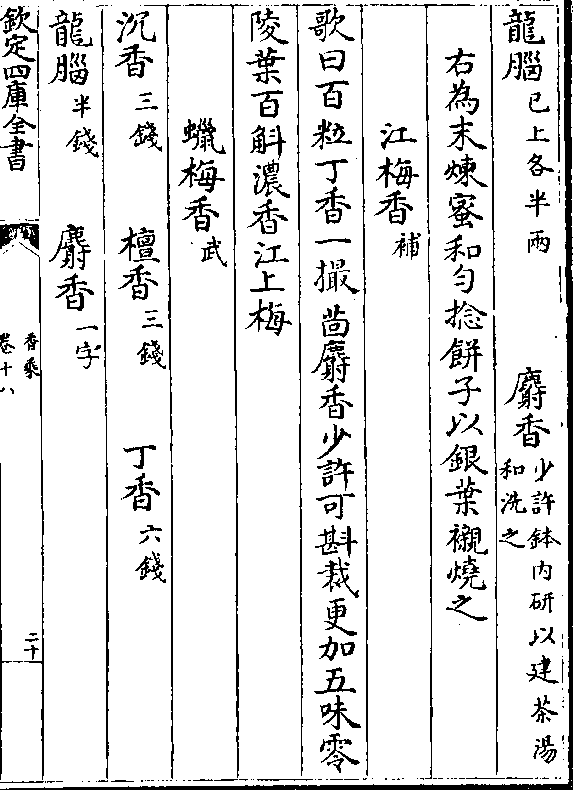 龍腦已上各半兩 麝香少許鉢内研以建茶湯和洗之
右為末煉蜜和勻捻餅子以銀葉襯燒之
江梅香補
歌曰百粒丁香一撮茴麝香少許可斟裁更加五味零
陵葉百斛濃香江上梅
蠟梅香武
沉香三錢 檀香三錢 丁香六錢
龍腦半錢 麝香一字
欽定四庫全書
香乘
卷十八
二十